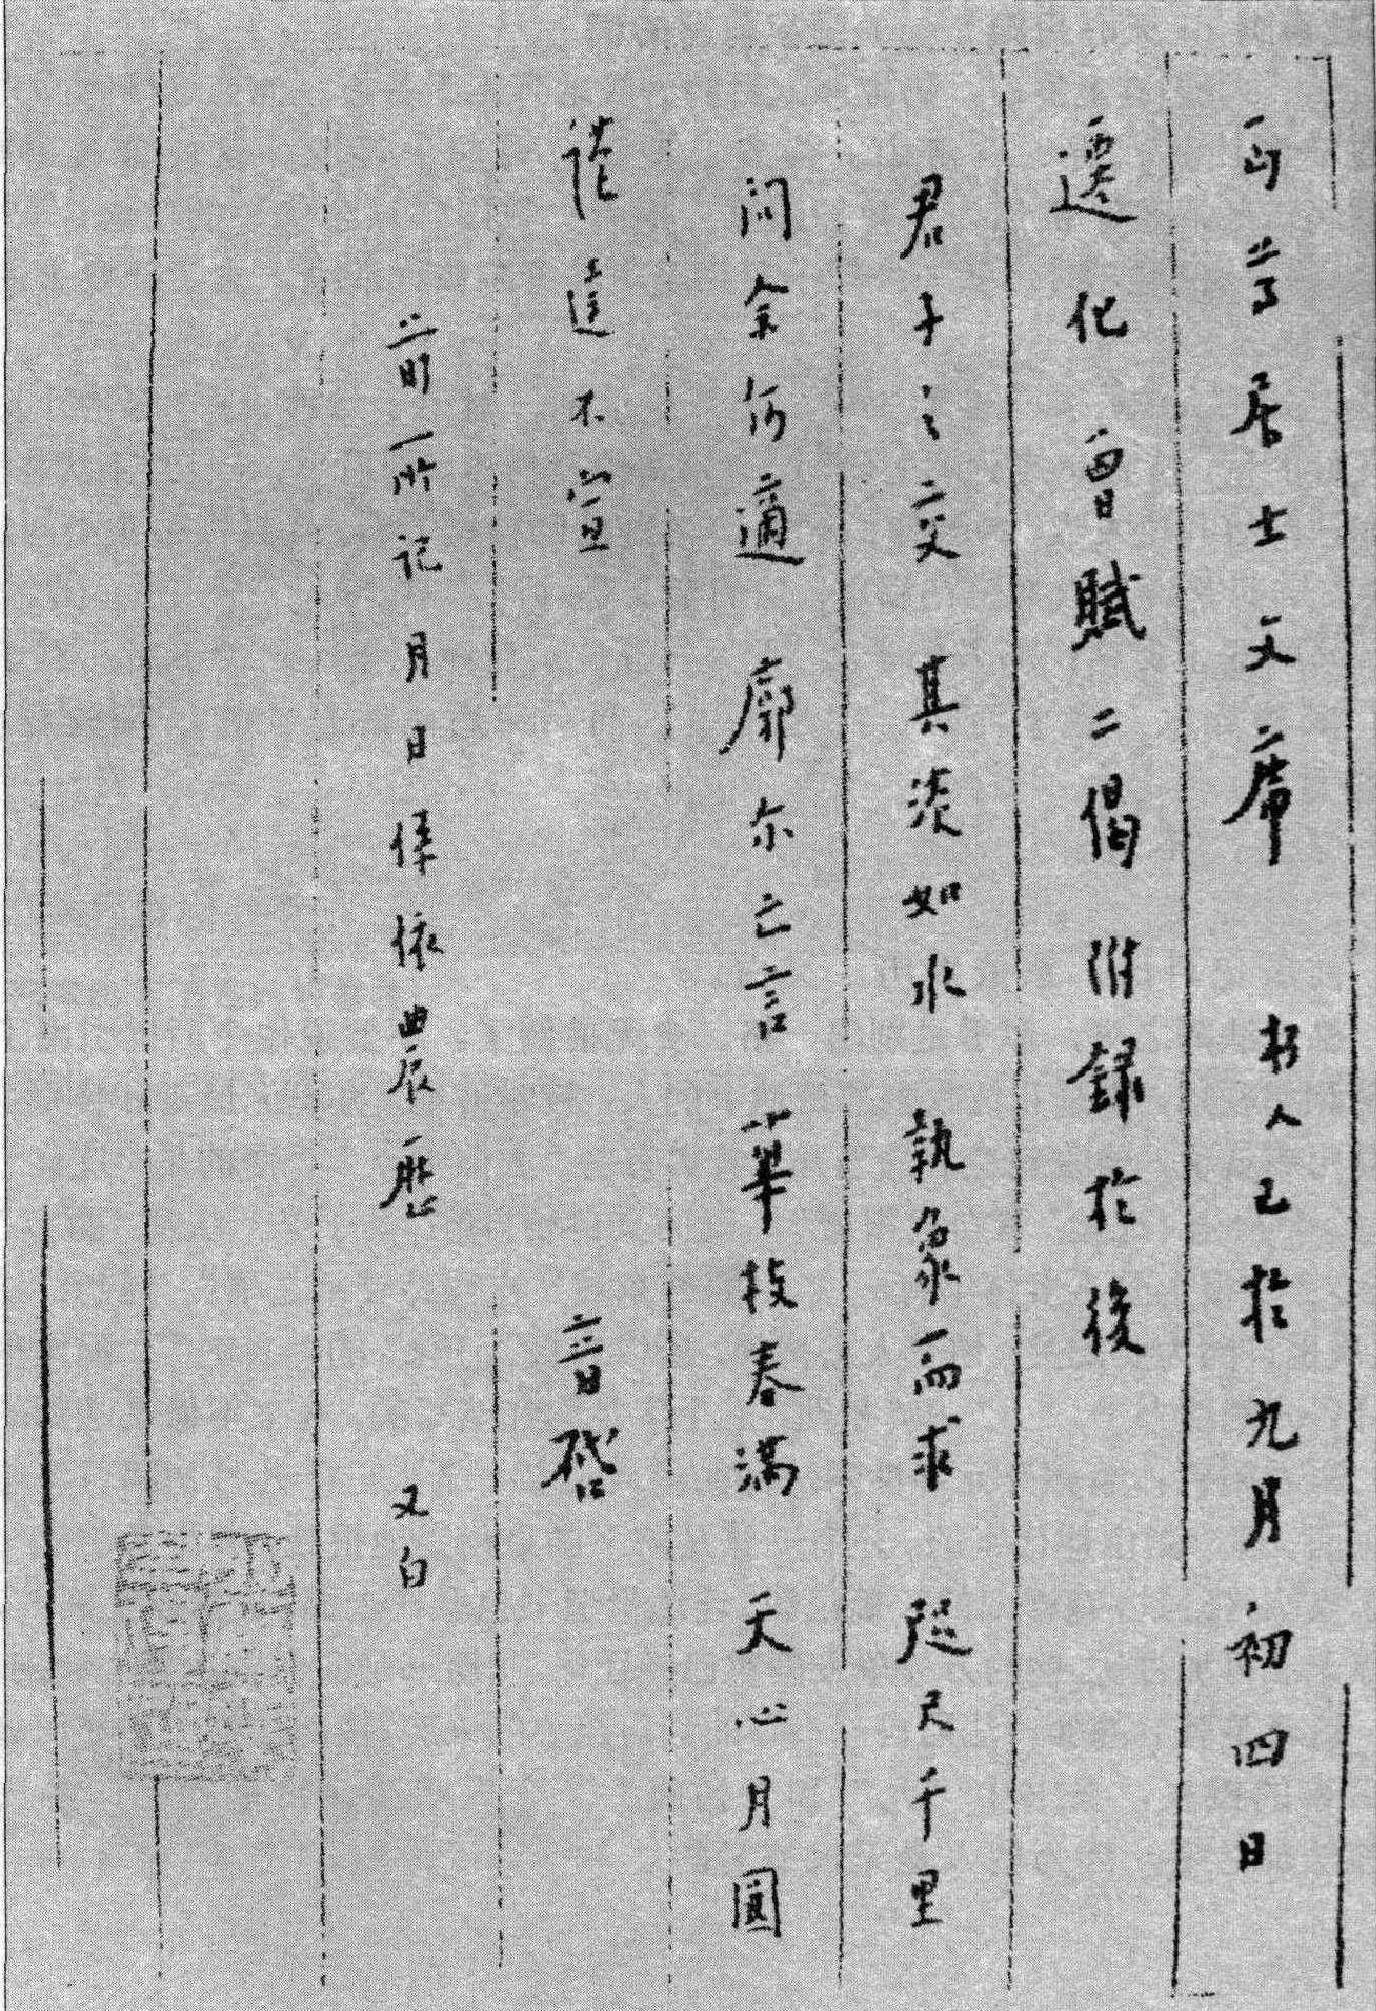 丏尊居士文席 朽人已於九月初四日
遷化曾賦二偈附錄於後
君子之交 其淡如水 執象而求 咫尺千里
問余何適 廓尔亡言 華枝春滿 天心月圓
謹達不宣 音啓
前所記月日係依農歷 又白